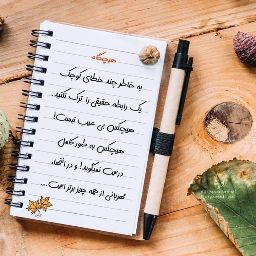 هیچگاه
به خاطر چند خطای کوچک
یک رابطه حقیقی را ترک نکنید.
هیچکس بی عیب نیست!
هیچکس به طور کامل
درست نمیگوید! و در انتها،
مهربانی از همه چیز برتر است...